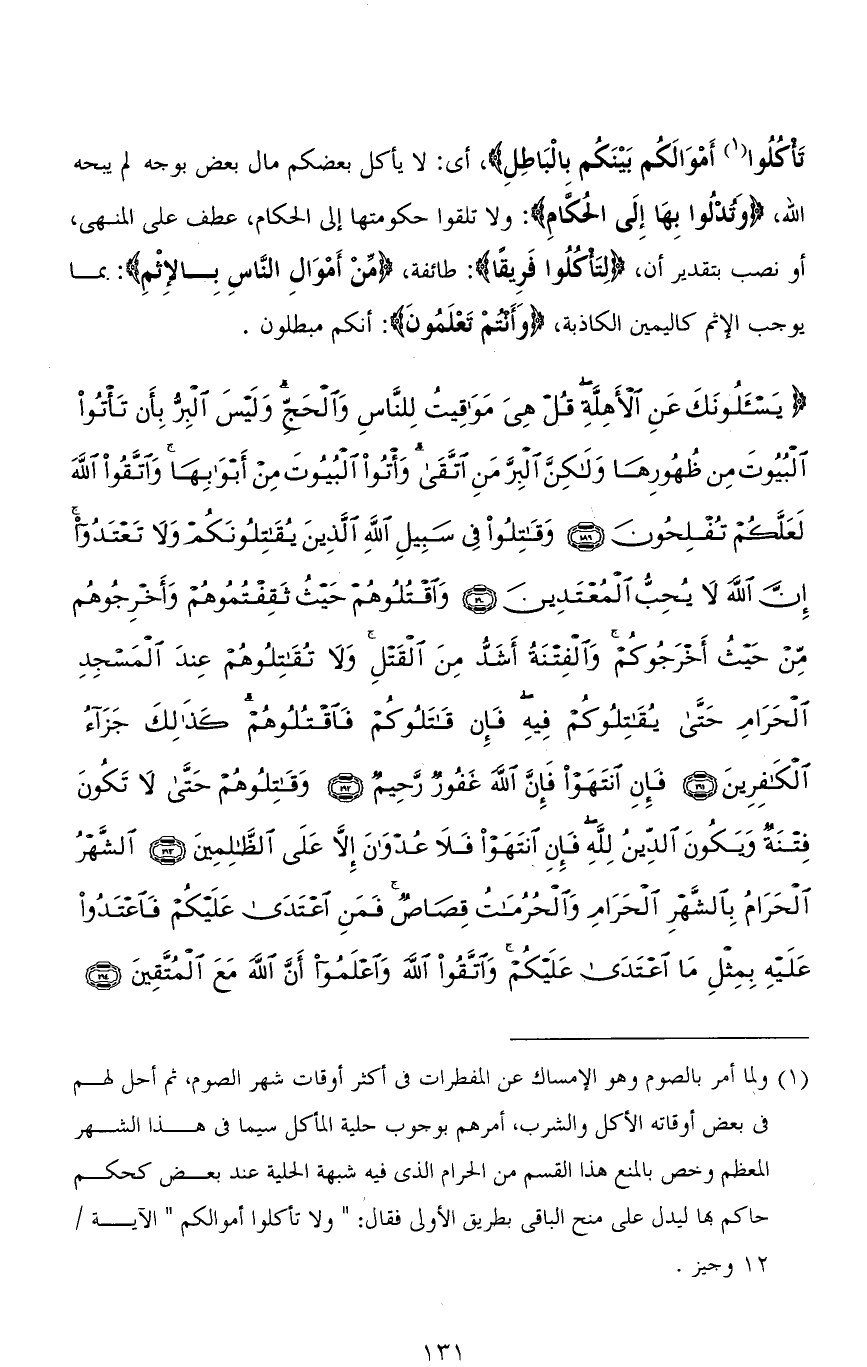 تَأْكُلُوا(١) أَمْوَالَكُم بَيْنَكُم بِالْبَاطِلِ﴾، أى: لا يأكل بعضكم مال بعض بوجه لم يبحه
الله، ﴿وَتُدْلُوا بِهَا إِلَى الْحُكَّامِ﴾: ولا تلقوا حكومتها إلى الحكام، عطف على المنهى،
أو نصب بتقدير أن، ﴿لِتَأْكُلُوا فَرِيقًا﴾: طائفة، ﴿مِّنْ أَمْوَالِ النَّاسِ بِالإِثْمِ﴾: بما
يوجب الإثم كاليمين الكاذبة، ﴿وَأَنْتُمْ تَعْلَمُونَ﴾: أنكم مبطلون .
﴿ يَسْـَٔلُونَكَ عَنِ ٱلْأَهِلَّةِ ۖ قُلْ هِىَ مَوَٰقِيتُ لِلنَّاسِ وَٱلْحَجِّ ۗ وَلَيْسَ ٱلْبِرُّ بِأَن تَأْتُوا۟
ٱلْبُيُوتَ مِن ظُهُورِهَا وَلَـٰكِنَّ ٱلْبِرَّ مَنِ ٱتَّقَىٰ ۗ وَأْتُوا۟ ٱلْبُيُوتَ مِنْ أَبْوَٰبِهَا ۚ وَٱتَّقُوا۟ ٱللَّهَ
لَعَلَّكُمْ تُفْلِحُونَ ١٨٩ وَقَـٰتِلُوا۟ فِى سَبِيلِ ٱللَّهِ ٱلَّذِينَ يُقَـٰتِلُونَكُمْ وَلَا تَعْتَدُوٓا۟ ۚ
إِنَّ ٱللَّهَ لَا يُحِبُّ ٱلْمُعْتَدِينَ ١٩٠ وَٱقْتُلُوهُمْ حَيْثُ ثَقِفْتُمُوهُمْ وَأَخْرِجُوهُم
مِّنْ حَيْثُ أَخْرَجُوكُمْ ۚ وَٱلْفِتْنَةُ أَشَدُّ مِنَ ٱلْقَتْلِ ۚ وَلَا تُقَـٰتِلُوهُمْ عِندَ ٱلْمَسْجِدِ
ٱلْحَرَامِ حَتَّىٰ يُقَـٰتِلُوكُمْ فِيهِ ۖ فَإِن قَـٰتَلُوكُمْ فَٱقْتُلُوهُمْ ۗ كَذَٰلِكَ جَزَآءُ
ٱلْكَـٰفِرِينَ ١٩١ فَإِنِ ٱنتَهَوْا۟ فَإِنَّ ٱللَّهَ غَفُورٌ رَّحِيمٌ ١٩٢ وَقَـٰتِلُوهُمْ حَتَّىٰ لَا تَكُونَ
فِتْنَةٌ وَيَكُونَ ٱلدِّينُ لِلَّهِ ۖ فَإِنِ ٱنتَهَوْا۟ فَلَا عُدْوَٰنَ إِلَّا عَلَى ٱلظَّـٰلِمِينَ ١٩٣ ٱلشَّهْرُ
ٱلْحَرَامُ بِٱلشَّهْرِ ٱلْحَرَامِ وَٱلْحُرُمَـٰتُ قِصَاصٌ ۚ فَمَنِ ٱعْتَدَىٰ عَلَيْكُمْ فَٱعْتَدُوا۟
عَلَيْهِ بِمِثْلِ مَا ٱعْتَدَىٰ عَلَيْكُمْ ۚ وَٱتَّقُوا۟ ٱللَّهَ وَٱعْلَمُوٓا۟ أَنَّ ٱللَّهَ مَعَ ٱلْمُتَّقِينَ ١٩٤
(١) ولما أمر بالصوم وهو الإمساك عن المفطرات فى أكثر أوقات شهر الصوم، ثم أحل لهم
فى بعض أوقاته الأكل والشرب، أمرهم بوجوب حلية المأكل سيما فى هذا الشهر
المعظم وخص بالمنع هذا القسم من الحرام الذى فيه شبهة الحلية عند بعض كحكم
حاكم بها ليدل على منح الباقى بطريق الأولى فقال: " ولا تأكلوا أموالكم " الآية /
١٢ وجيز .
١٣١